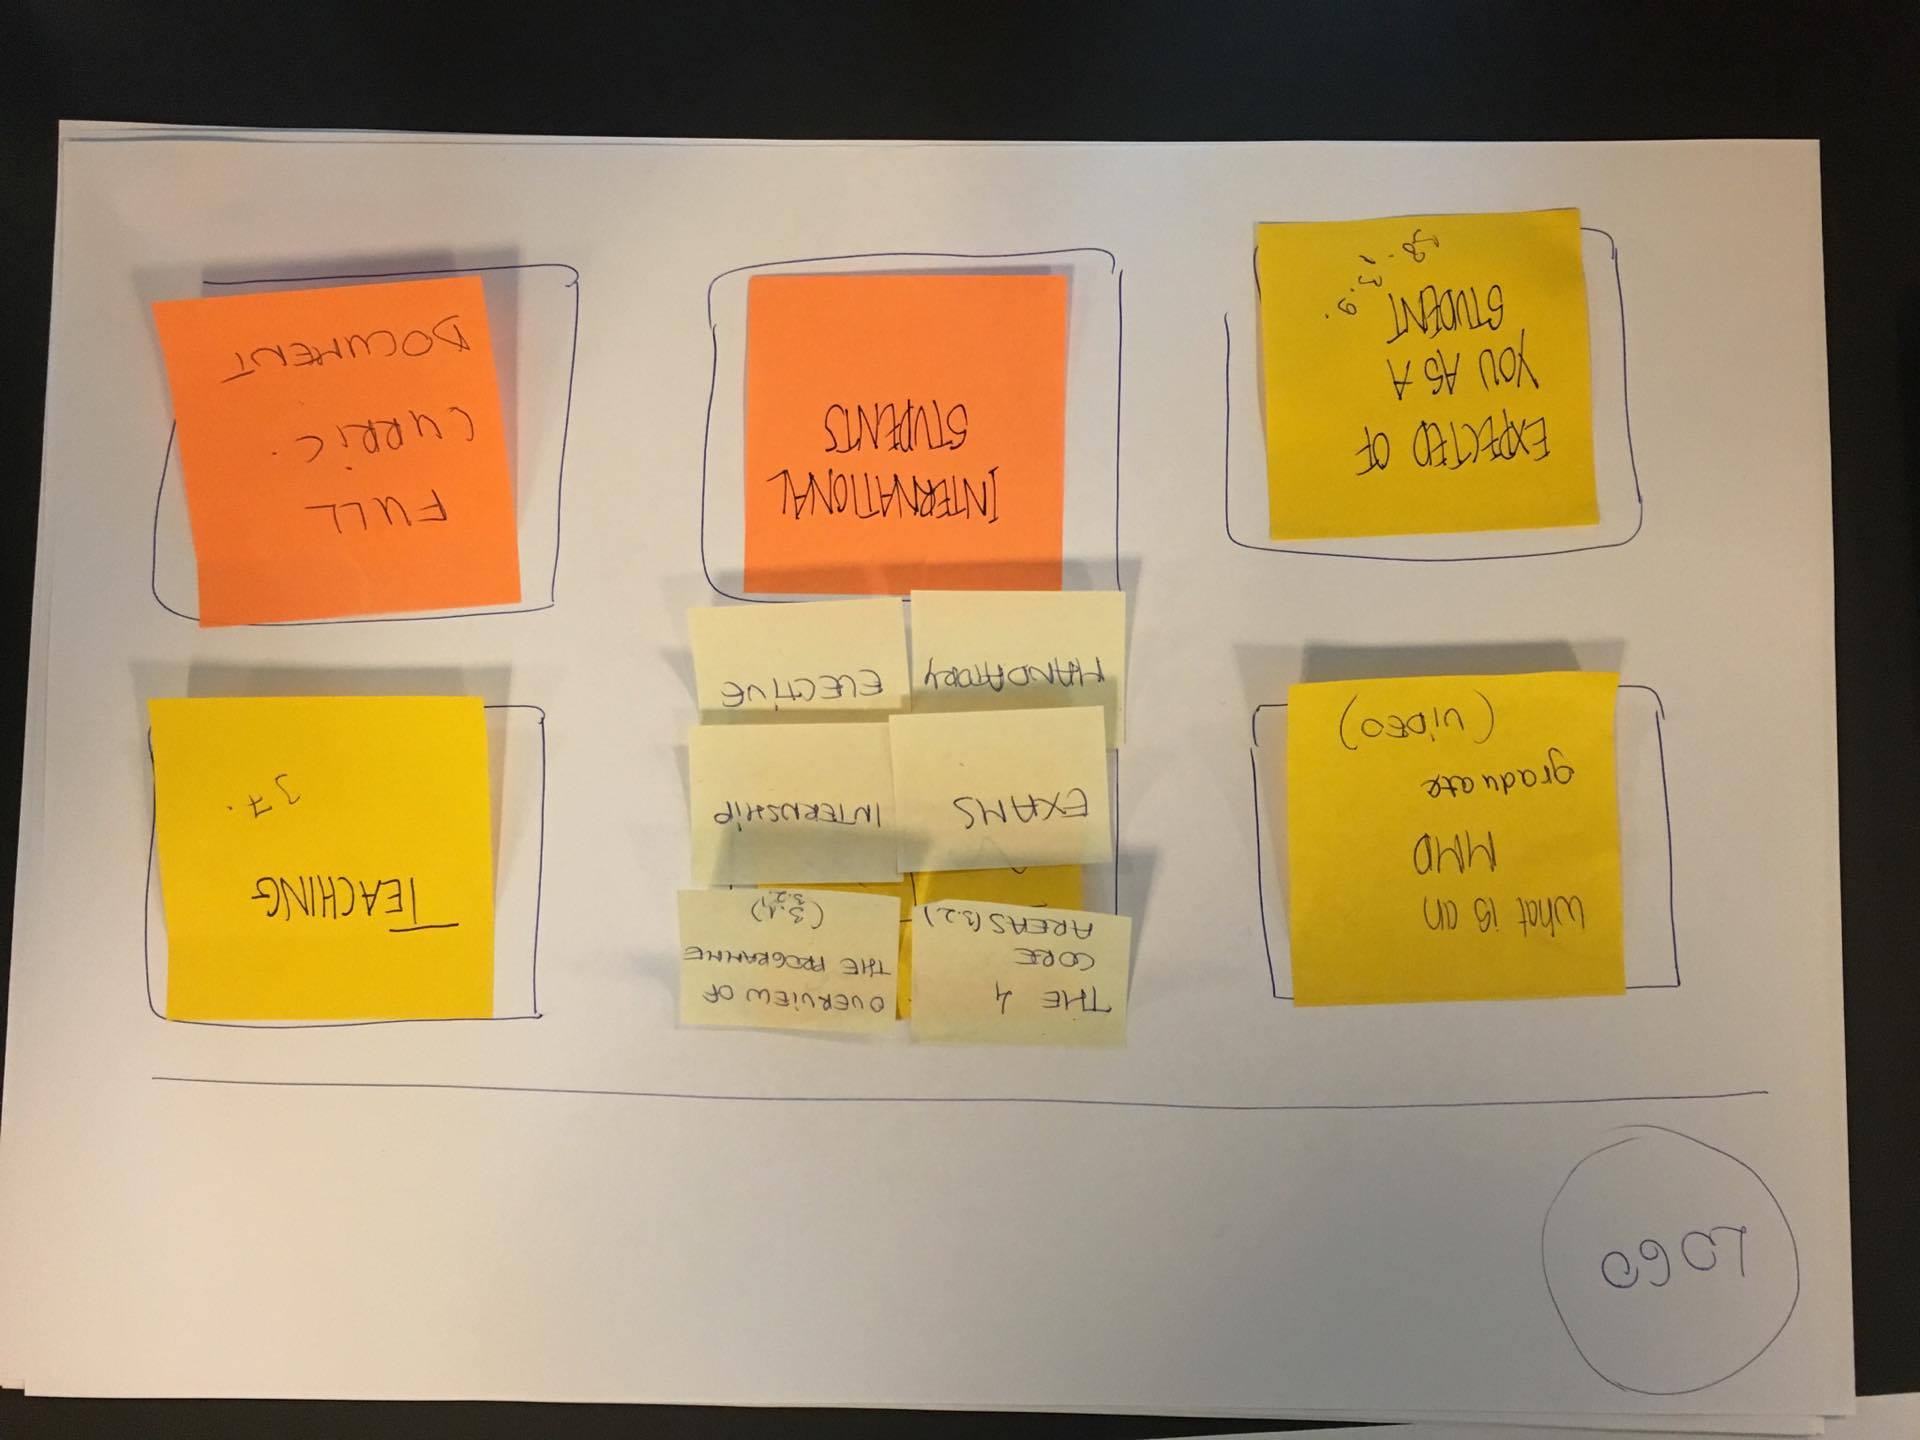 LOGO
What is an
MMD
graduate
(VIDEO)
THE 4
CORE
AREAS (3.2)
OVERVIEW OF
THE PROGRAMME
(3.1)
3.2.
EXAMS
INTERNSHIP
MANDATORY
ELECTIVE
TEACHING
37.
EXPECTED OF
YOU AS A
STUDENT
INTERNATIONAL
STUDENTS
FULL
CURRIC.
DOCUMENT